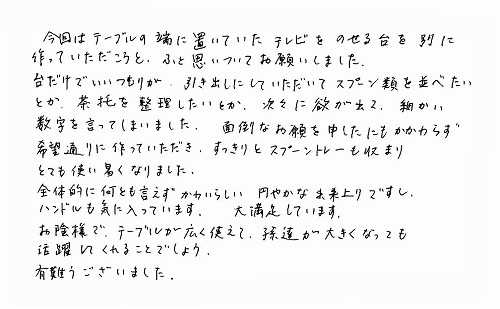 今回はテーブルの端に置いていたテレビをのせる台を別に
作っていただこうと、ふと思いついてお願いしました。
台だけでいいつもりが、引き出しにしていただいてスプーン類を並べたい
とか、茶托を整理したいとか、次々に欲が出て、細かい
数字を言ってしまいました。 面倒なお願を申したにもかかわらず
希望通りに作っていただき、すっきりとスプーントレーも収まり
とても使い易くなりました。
全体的に何とも言えずかわいらしい円やかな出来上りですし、
ハンドルも気に入っています。 大満足しています。
お陰様で、テーブルが広く使えて、孫達が大きくなっても
活躍してくれることでしょう。
有難うございました。